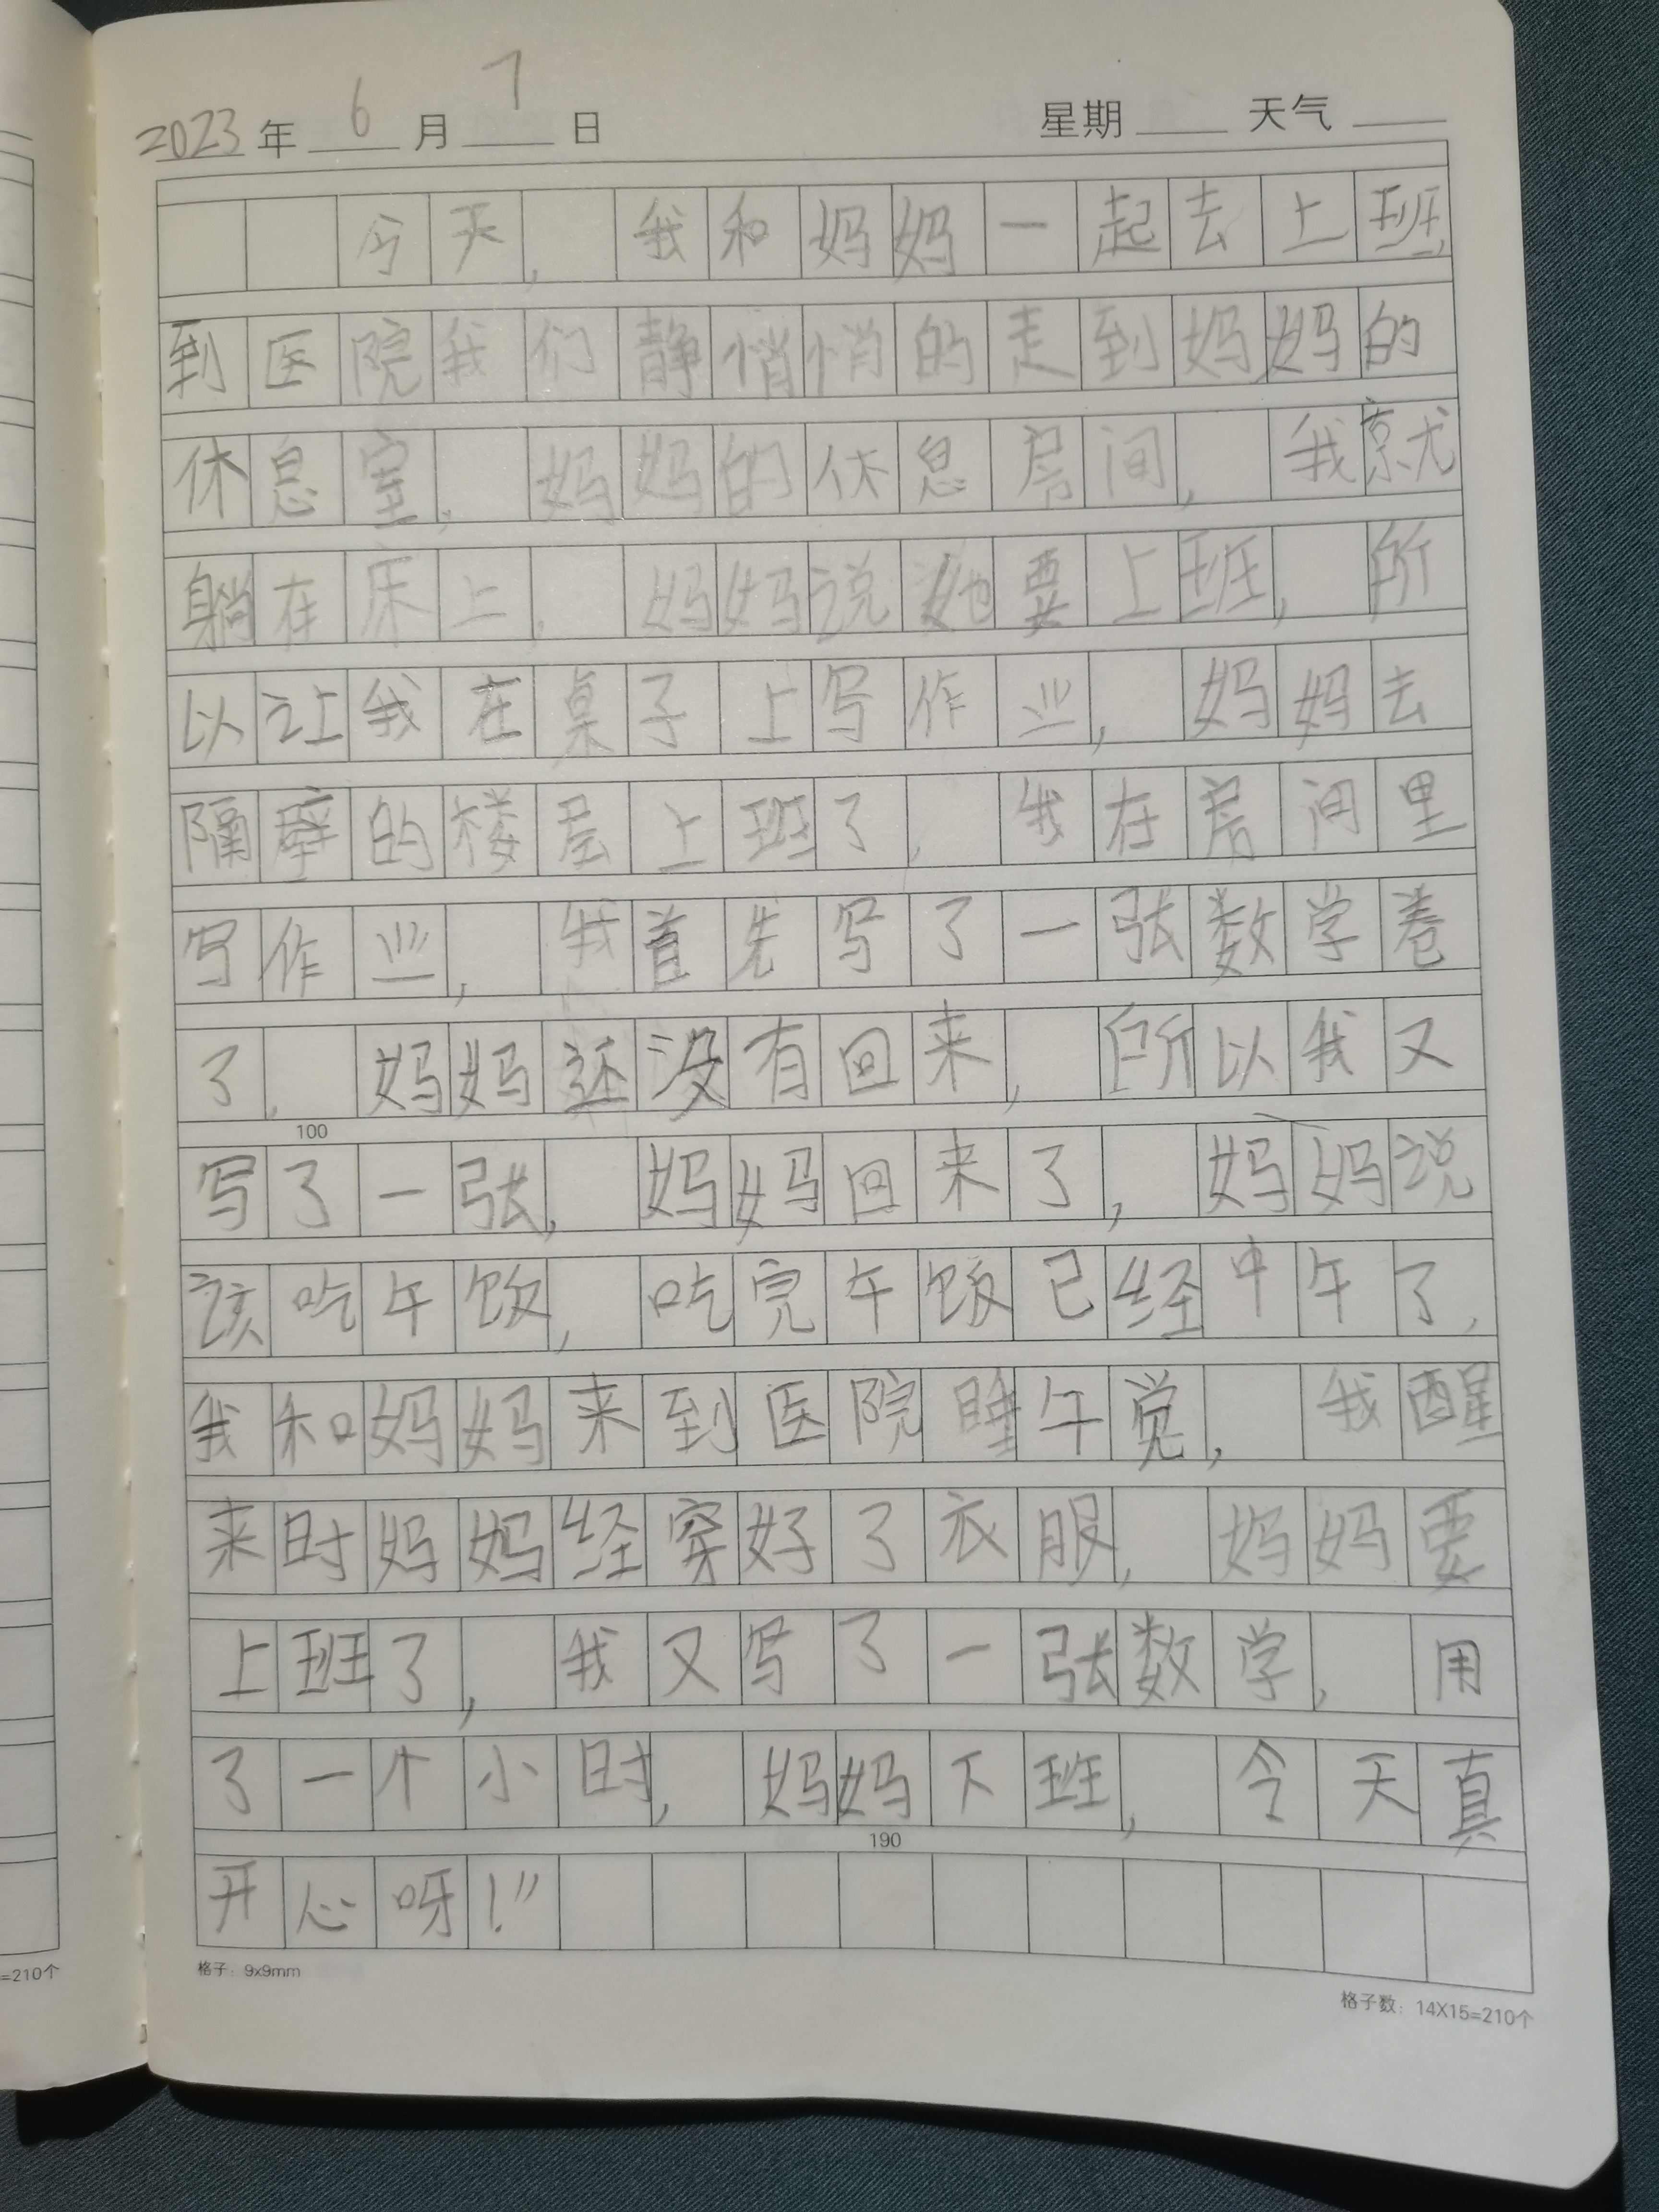 2023年 6 月 7 日 星期 天气
今天，我和妈妈一起去上班，
到医院我们静悄悄的走到妈妈的
休息室，妈妈的休息房间，我就
躺在床上，妈妈说她要上班，所
以让我在桌子上写作业，妈妈去
隔壁的楼层上班了，我在房间里
写作业，我首先写了一张数学卷
了，妈妈还没有回来，所以我又
100
写了一张，妈妈回来了，妈妈说
该吃午饭，吃完午饭已经中午了，
我和妈妈来到医院睡午觉，我醒
来时妈妈经穿好了衣服，妈妈要
上班了，我又写了一张数学，用
了一个小时，妈妈下班，今天真
190
开心呀！”
格子：9x9mm
=210个
格子数：14X15=210个